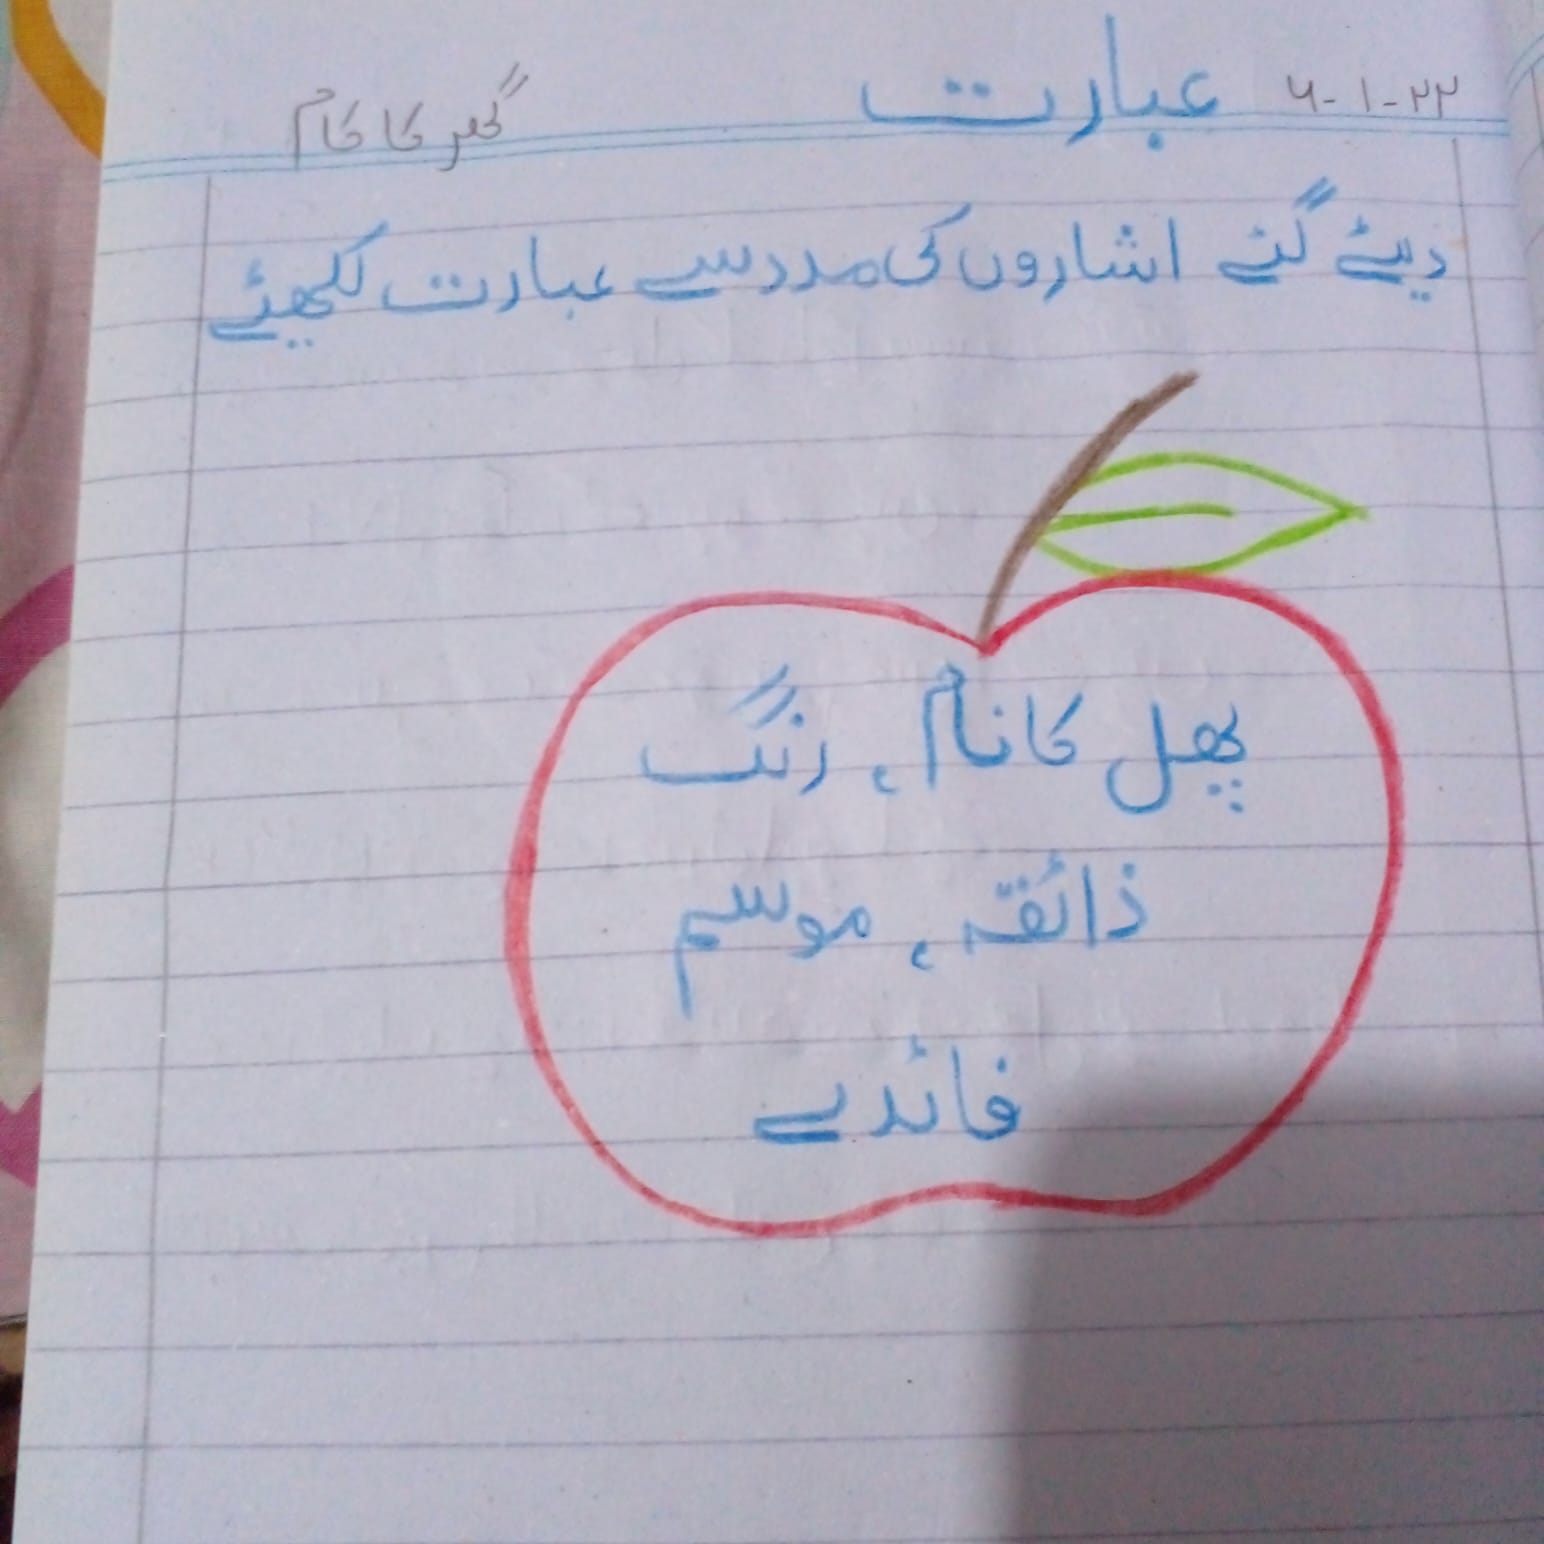 ۲۲-۱-۶ عبارت گھر کا کام
دیئے گئے اشاروں کی مدد سے عبارت لکھیئے
پھل کا نام، رنگ
ذائقہ، موسم
فائدے